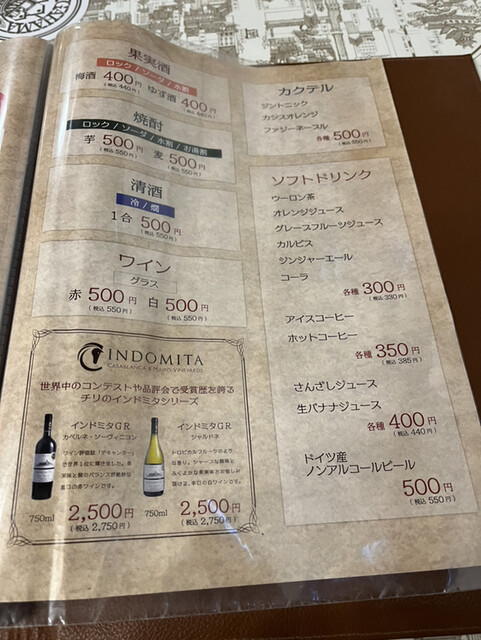 果実酒
ロック / ソーダ / 水割
梅酒 400円 ゆず酒 400円
(税込 440円) (税込 440円)
焼酎
ロック / ソーダ / 水割 / お湯割
芋 500円 麦 500円
(税込 550円) (税込 550円)
清酒
冷 / 燗
1合 500円
(税込 550円)
ワイン
グラス
赤 500円 白 500円
(税込 550円) (税込 550円)
INDOMITA
CASABLANCA & MAIPO VINEYARDS
世界中のコンテストや品評会で受賞歴を誇る
チリのインドミタシリーズ
インドミタGR
カベルネ・ソーヴィニヨン
750ml 2,500円
(税込 2,750円)
インドミタGR
シャルドネ
トロピカルフルーツのよう
750ml 2,500円
(税込 2,750円)
カクテル
ジントニック
カシスオレンジ
ファジーネーブル
各種 500円
(税込 550円)
ソフトドリンク
ウーロン茶
オレンジジュース
グレープフルーツジュース
カルピス
ジンジャーエール
コーラ
各種 300円
(税込 330円)
アイスコーヒー
ホットコーヒー
各種 350円
(税込 385円)
さんざしジュース
生バナナジュース
各種 400円
(税込 440円)
ドイツ産
ノンアルコールビール
500円
(税込 550円)